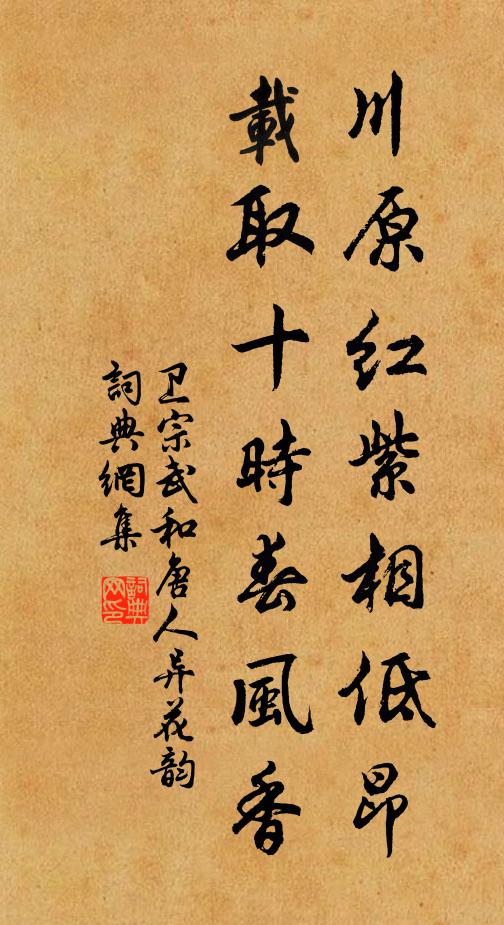 川原红紫相低昂
載取十時春風香
卫宗武和唐人异花韵
詞典網集
詞典网印